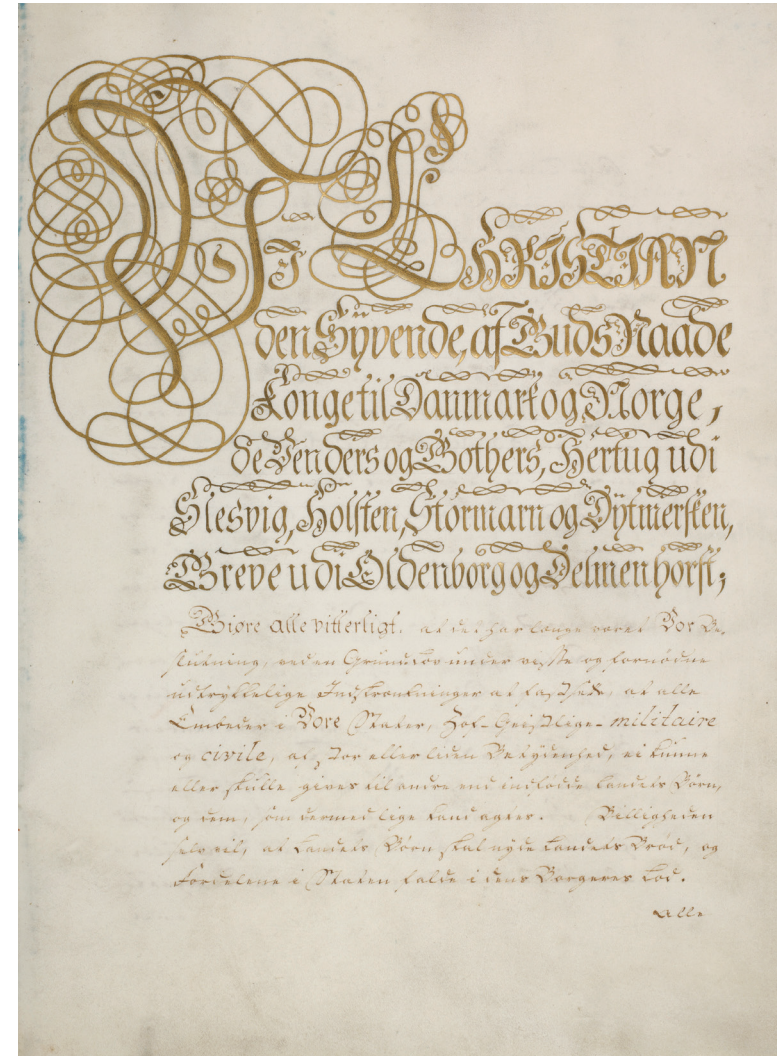 VI CHRISTIAN
den Syvende, af Guds Naade
Konge til Danmark og Norge,
de Venders og Gothers, Hertug udi
Slesvig, Holsten, Stormarn og Dytmersken,
Greve udi Oldenborg og Delmenhorst;
Giøre alle vitterligt: at det har længe været Vor Be-
slutning, ved en Grundlov under visse og fornødne
udtrykkelige Indskrænkninger at fastsætte, at alle
Embeder i Vore Stater, Hof- Geistlige- militaire
og civile, af stor eller liden Betydenhed, ei kunne
eller skulle gives til andre end indfødde Landets Børn,
og dem, som dermed lige kand agtes. Billigheden
selv vil, at Landets Børn skal nyde Landets Brød, og
Fordelene i Staten falde i dens Borgeres Lod.
Alle